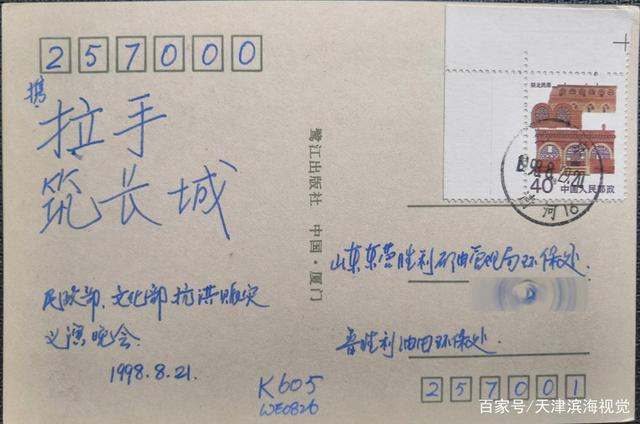 257000
携
拉手
筑长城
民政部、文化部抗洪赈灾
义演晚会
1998.8.21.
K605
WE0826
鹭江出版社 中国·厦门
陕北民居
40 中国人民邮政
河16
山东东营胜利石油管理局环保处
鲁胜利油田环保处
257001
百家号/天津滨海视觉